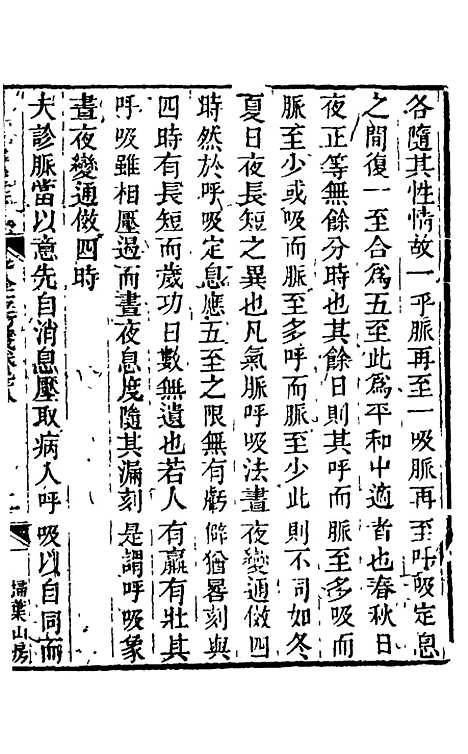 各隨其性情故一乎脈再至一吸脈再至吁吸定息
之間復一至合為五至此為平和中適者也春秋日
夜正等無餘分時也其餘日則其呼而脈至多吸而
脈至少或吸而脈至多呼而脈至少此則不同如冬
夏日夜長短之異也凡氣脈呼吸法晝夜變通做四
時然於呼吸定息應五至之限無有虧僻猶晷刻與
四時有長短而歲功日數無遺也若人有羸有壯其
呼吸雖相壓過而晝夜息度隨其漏刻是謂呼吸象
晝夜變通做四時
夫診脈當以意先自消息壓取病人呼吸以自同而
掃葉山房